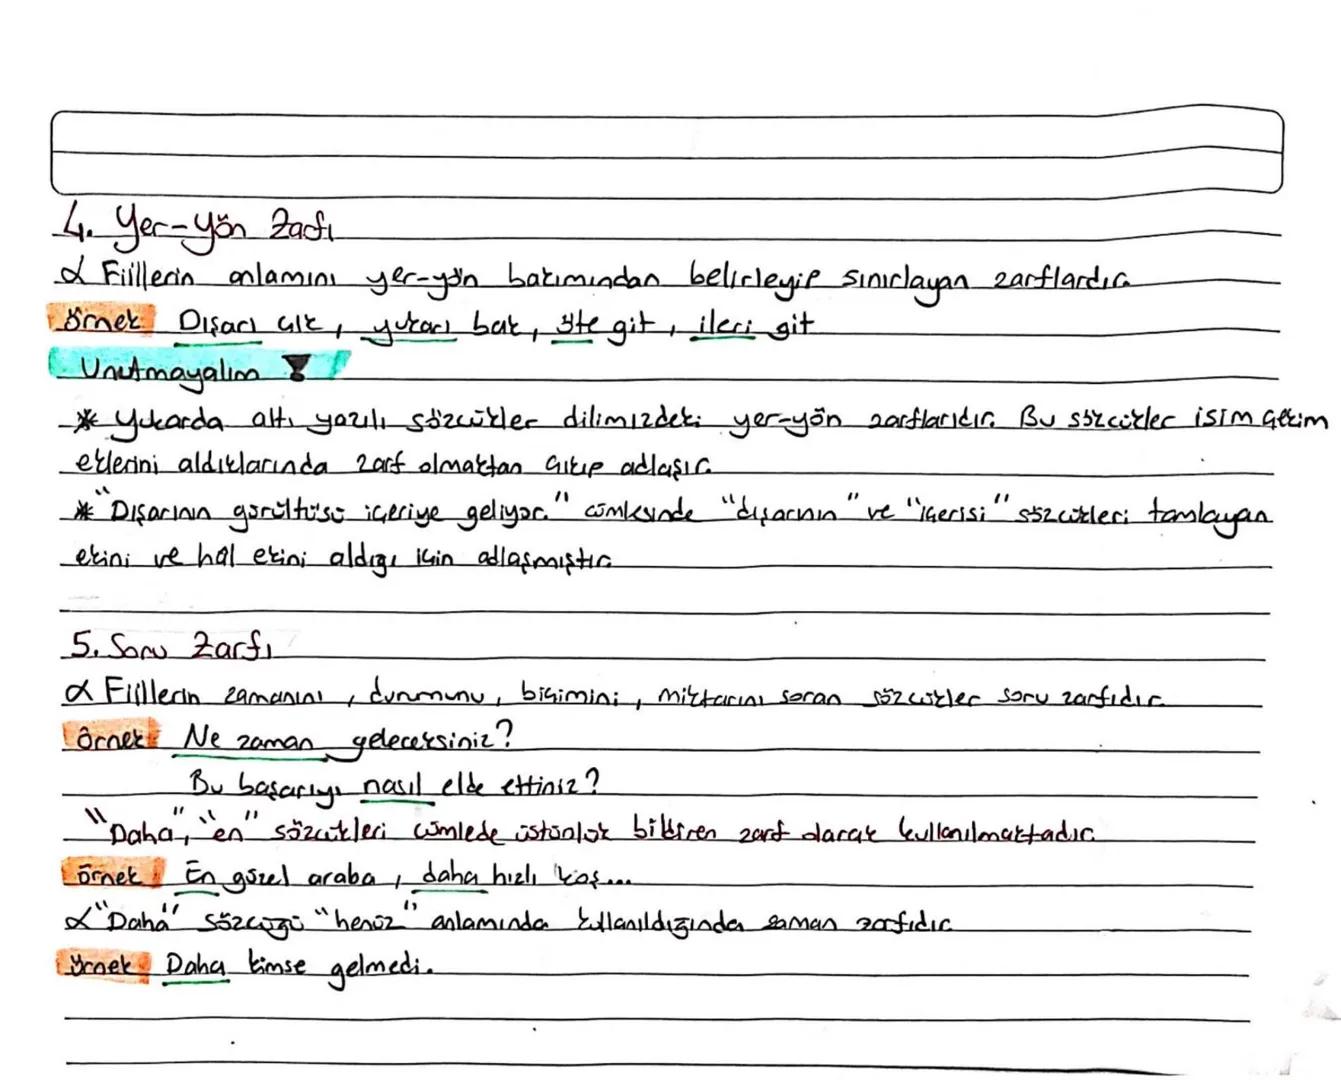 4. Yer-Yön Zarfı
α Fiillerin anlamını yer-yön bakımından belirleyip sınırlayan zarflardır
Örnek Dışarı çık, yukarı bak, öte git, ileri git
Unutmayalım !
* Yukarda altı yazılı sözcükler dilimizdeki yer-yön zarflarıdır. Bu sözcükler isim çekim
eklerini aldıklarında zarf olmaktan çıkıp adlaşır.
* "Dışarının gürültüsü içeriye geliyor." cümlesinde "dışarının" ve "içerisi" sözcükleri tamlayan
ekini ve hal ekini aldığı için adlaşmıştır.
5. Soru Zarfı
α Fiillerin zamanını, durumunu, biçimini, miktarını soran sözcükler soru zarfıdır.
Örnek Ne zaman geleceksiniz?
Bu başarıyı nasıl elde ettiniz?
"Daha", "en" sözcükleri cümlede üstünlük bildiren zarf olarak kullanılmaktadır.
Örnek En güzel araba, daha hızlı koş...
α "Daha" sözcüğü "henüz" anlamında kullanıldığında zaman zarfıdır
Örnek Daha kimse gelmedi.